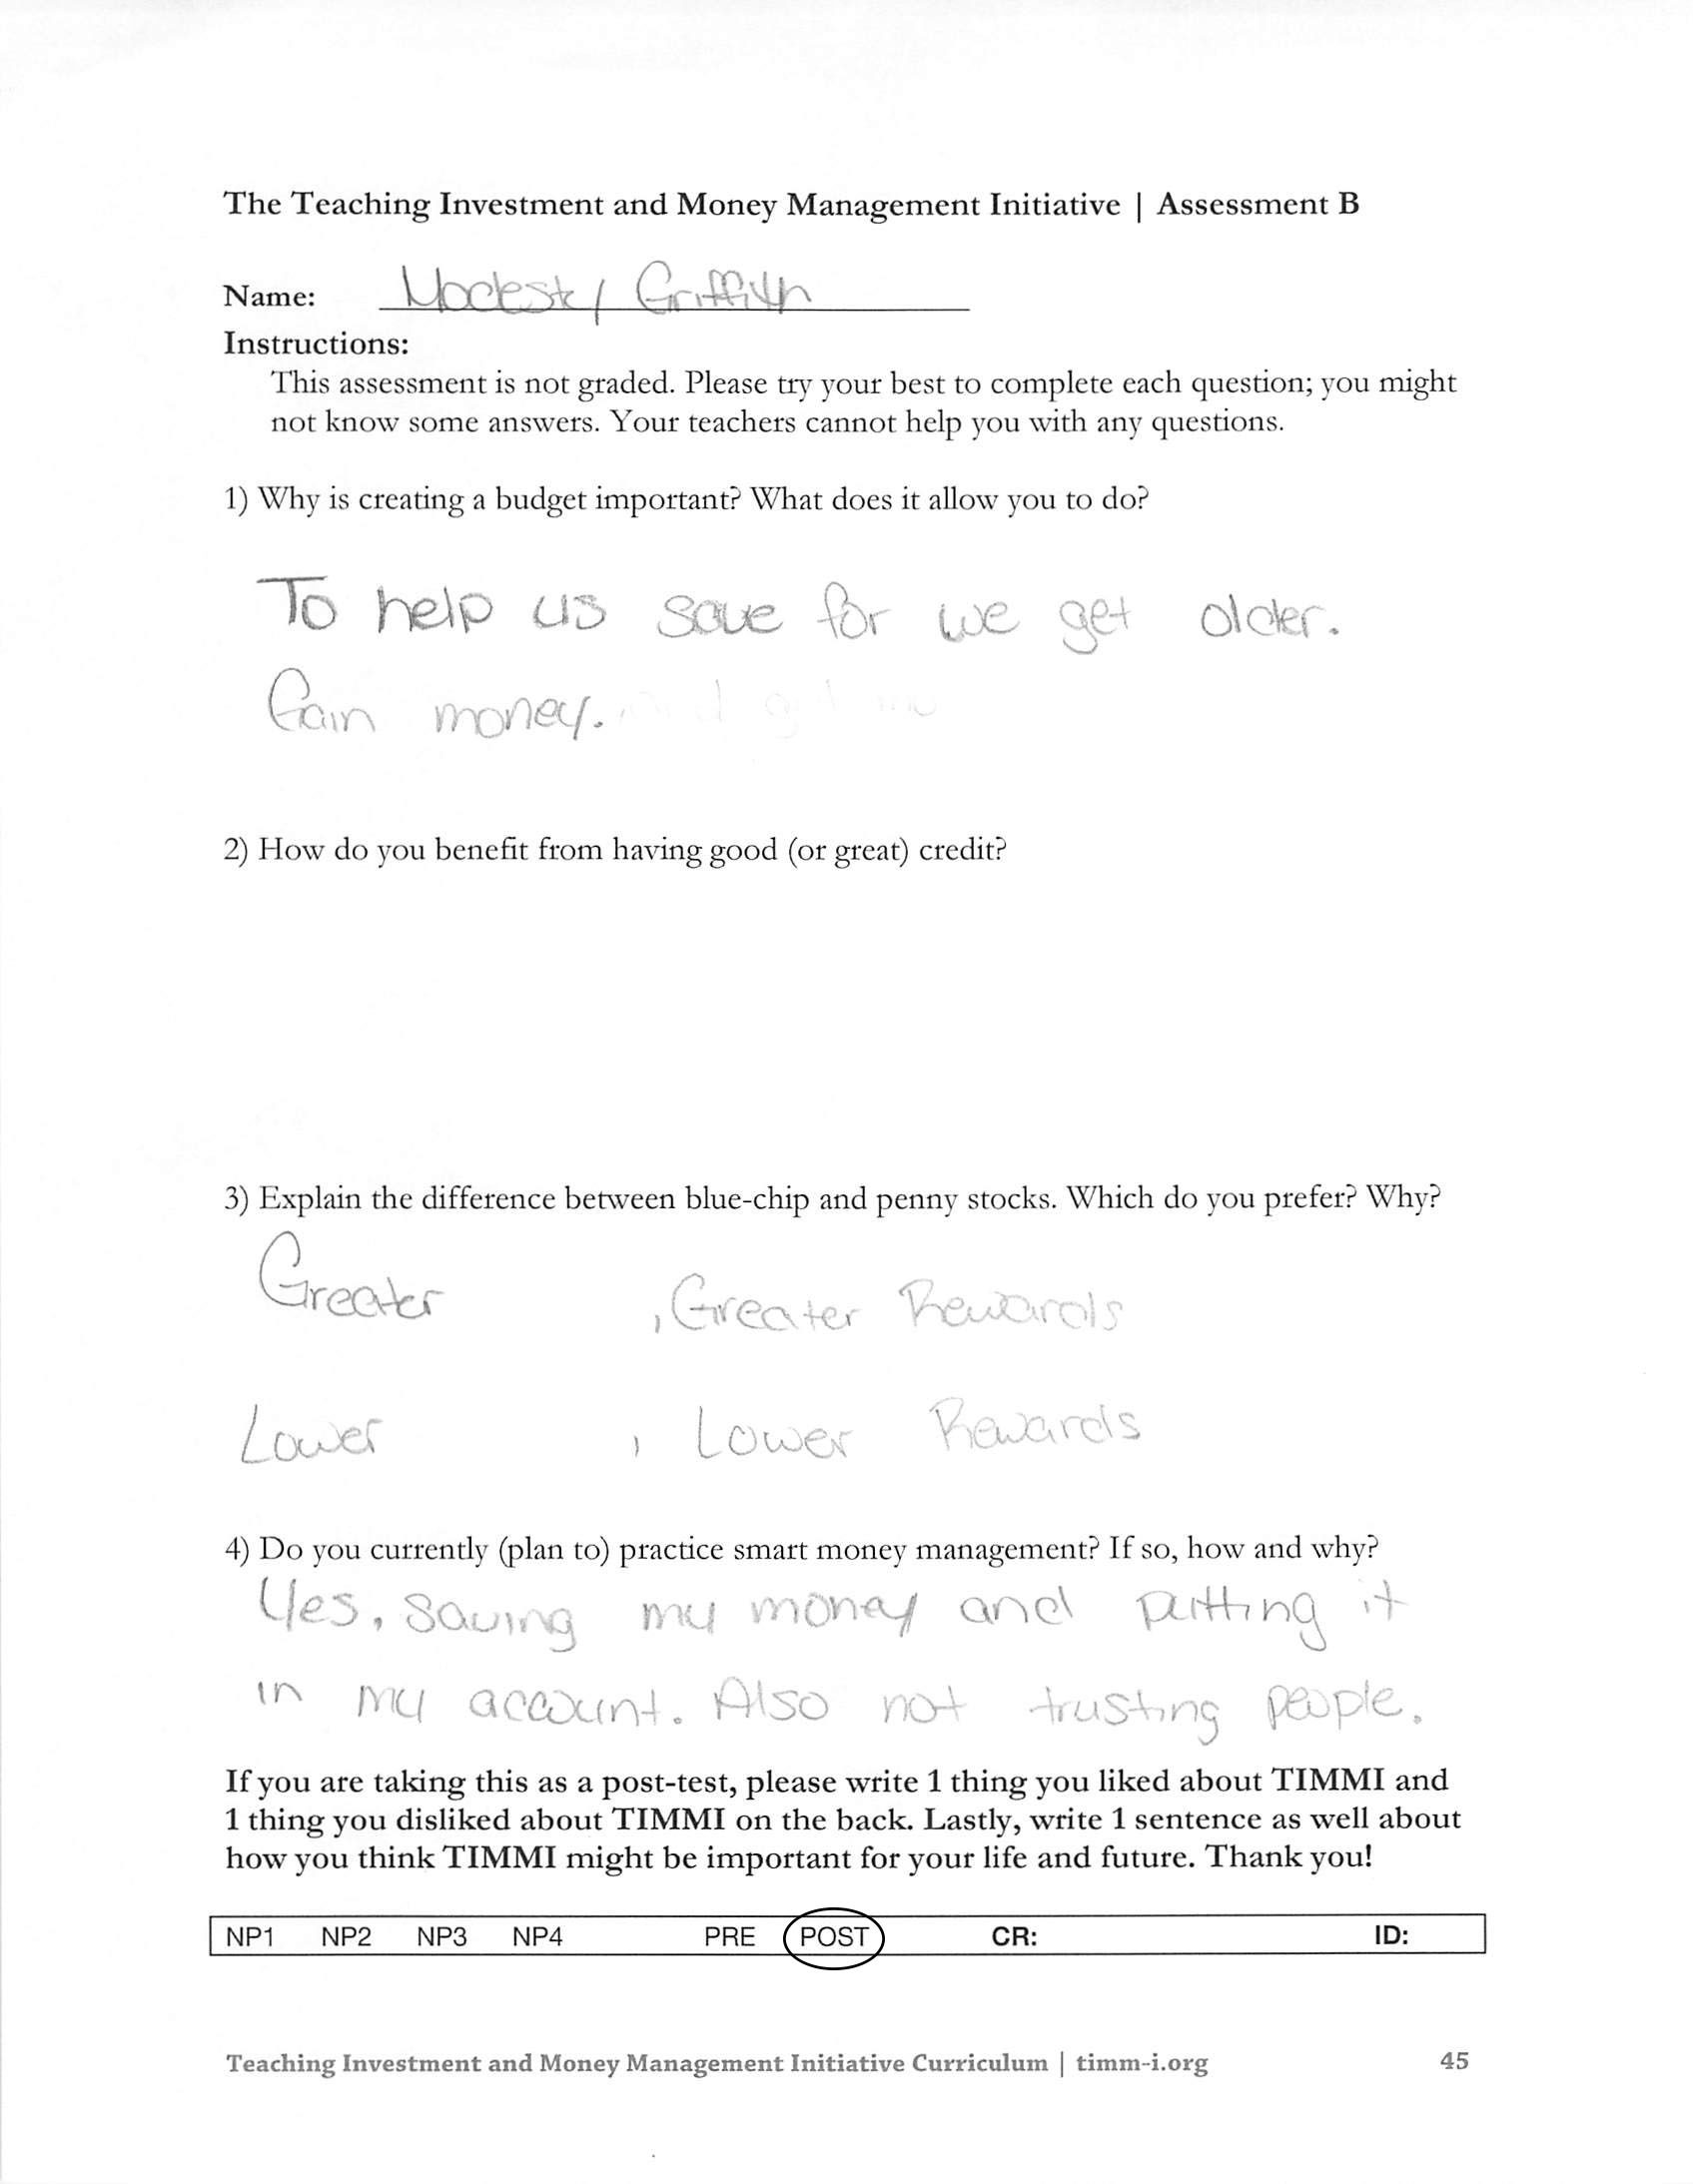 The Teaching Investment and Money Management Initiative | Assessment B
Name: Modesty Griffith
Instructions:
This assessment is not graded. Please try your best to complete each question; you might
not know some answers. Your teachers cannot help you with any questions.
1) Why is creating a budget important? What does it allow you to do?
To help us save for we get older.
Gain money.
2) How do you benefit from having good (or great) credit?
3) Explain the difference between blue-chip and penny stocks. Which do you prefer? Why?
Greater , Greater Rewards
Lower , Lower Rewards
4) Do you currently (plan to) practice smart money management? If so, how and why?
Yes, saving my money and putting it
in my account. Also not trusting people.
If you are taking this as a post-test, please write 1 thing you liked about TIMMI and
1 thing you disliked about TIMMI on the back. Lastly, write 1 sentence as well about
how you think TIMMI might be important for your life and future. Thank you!
NP1 NP2 NP3 NP4 PRE POST CR: ID:
Teaching Investment and Money Management Initiative Curriculum | timm-i.org 45